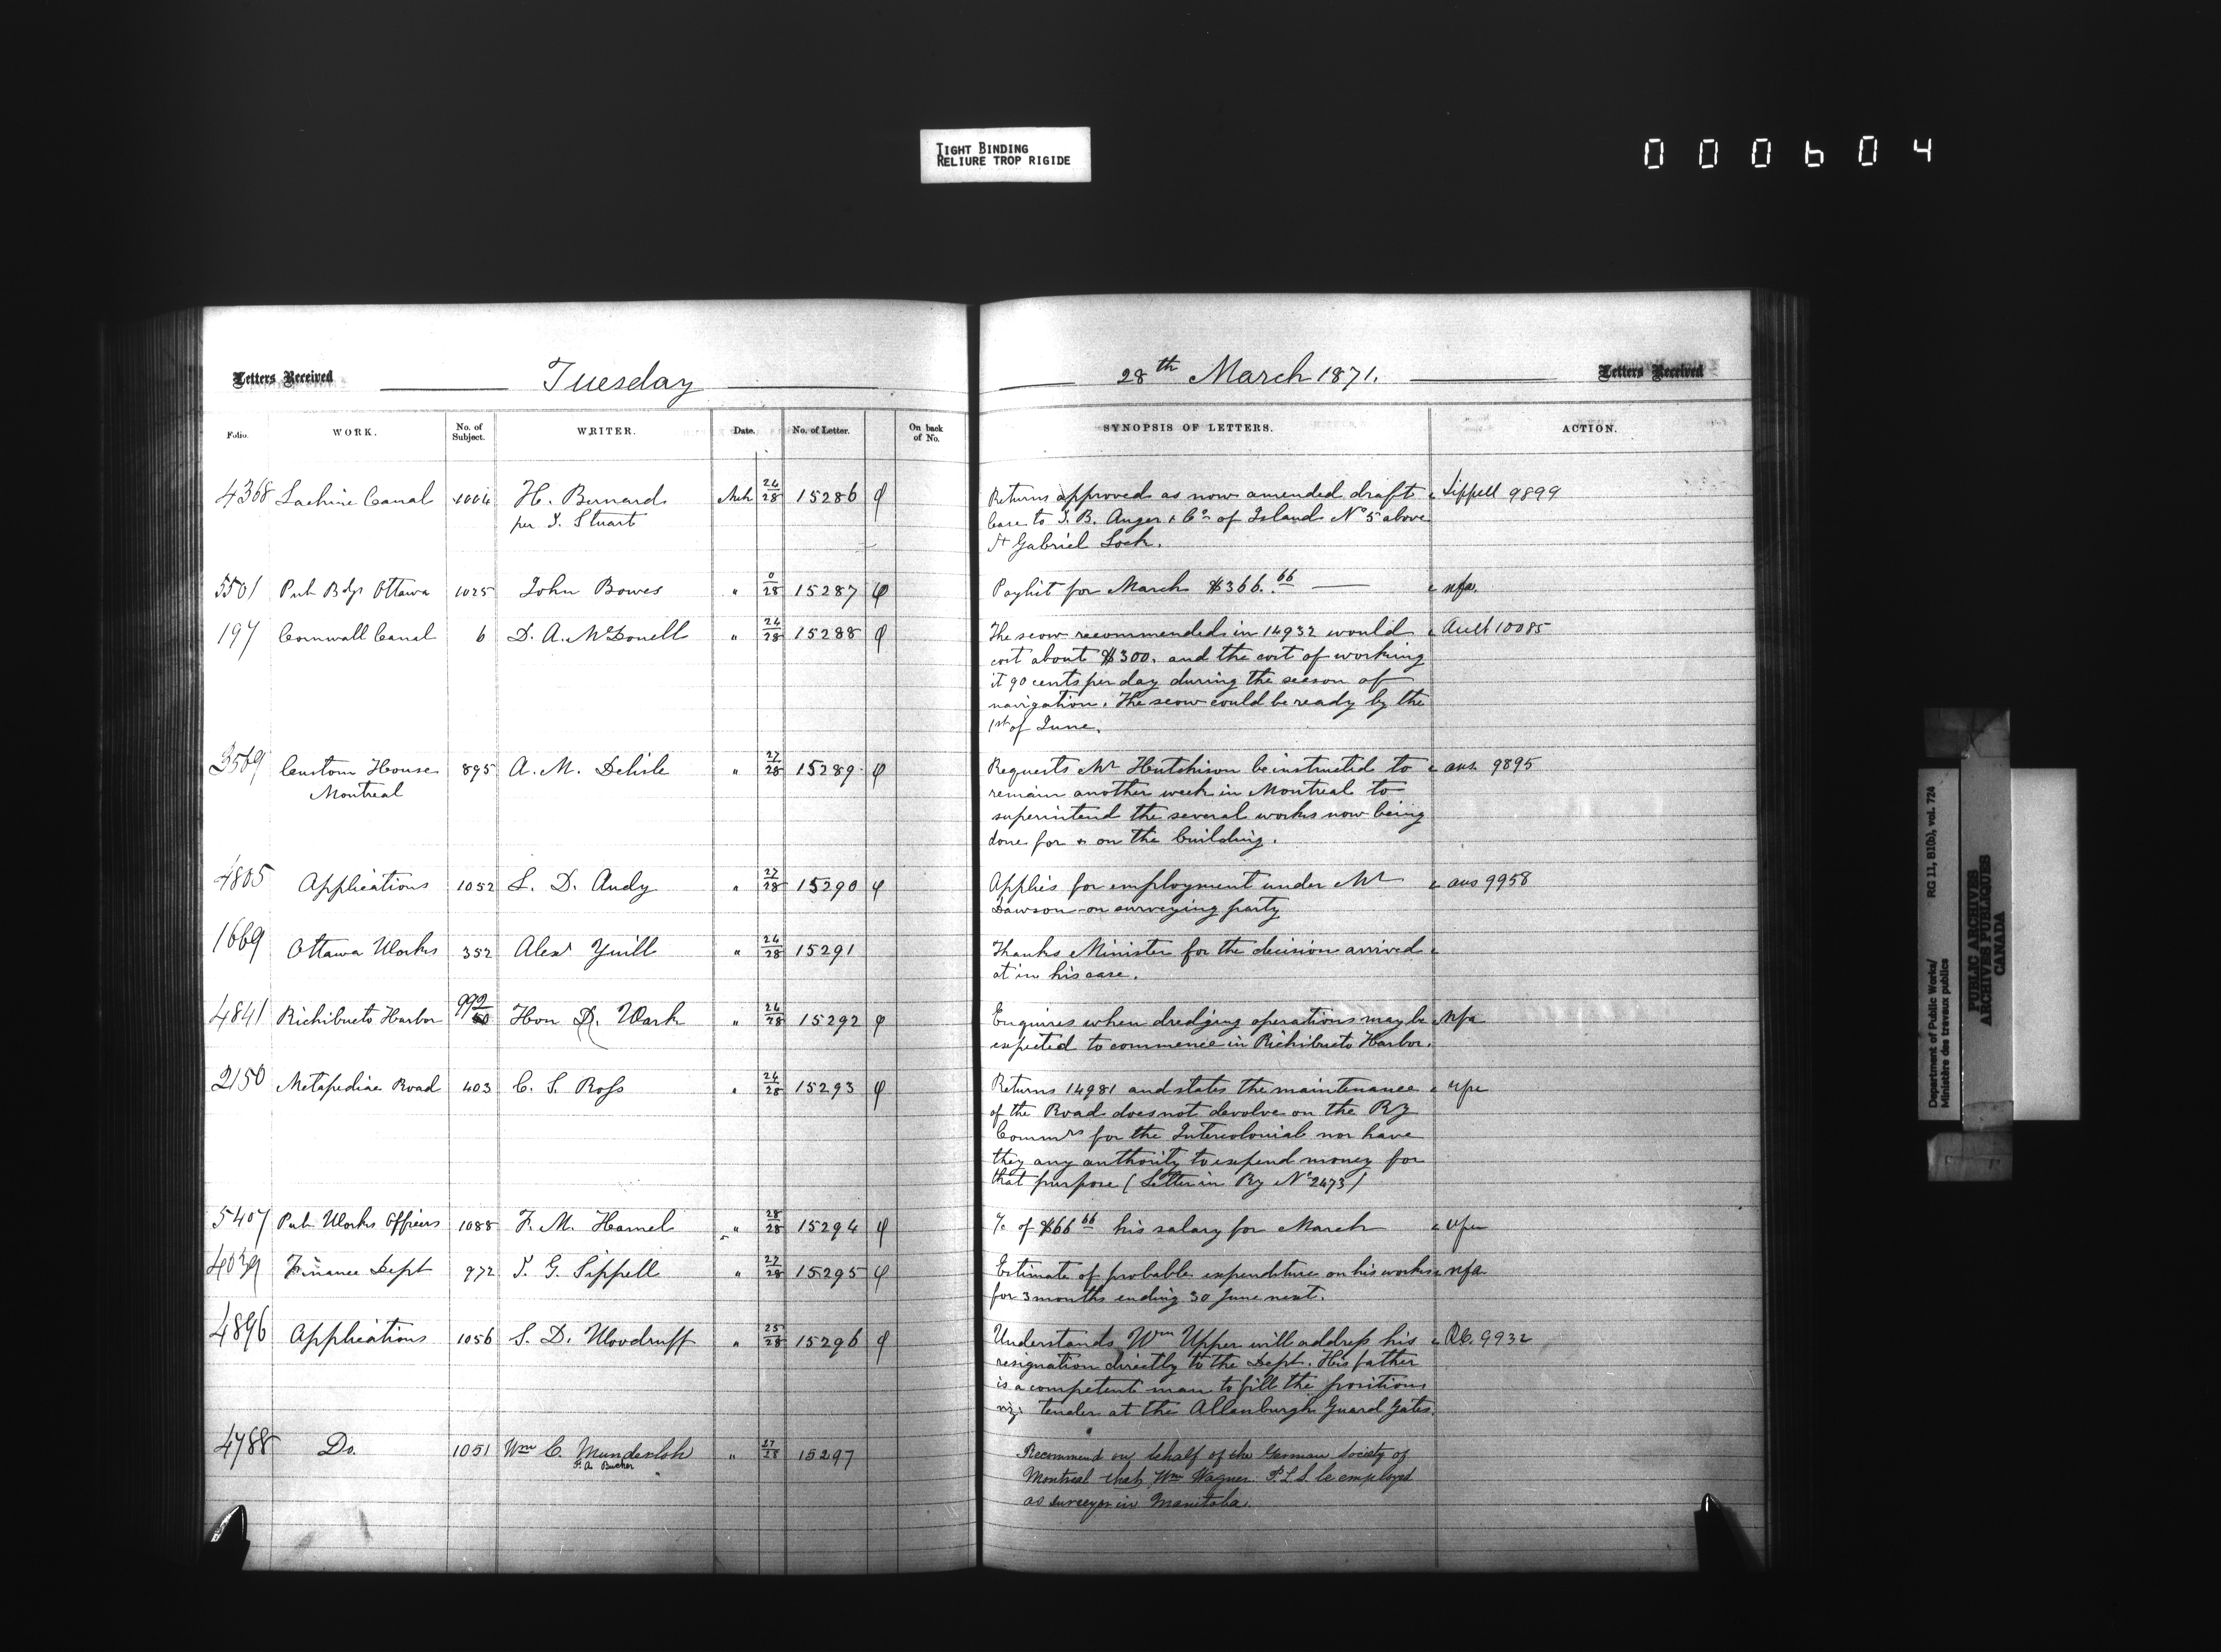 TIGHT BINDING
RELIURE TROP RIGIDE
000604
Letters Received Tuesday
28th March 1871. Letters Received
Folio. WORK. No. of Subject. WRITER. Date. No. of Letter. On back of No. SYNOPSIS OF LETTERS. ACTION.
4368 Lachine Canal 1004 H. Bernard Mch 24/28 15286 φ Returns approved as now amended draft Sippell 9899
per T. Stuart lease to J. B. Auger & Co of Island No 5 above
St Gabriel Lock.
5501 Pub Bdgs Ottawa 1025 John Bowes " 0/28 15287 φ Paylist for March $366.66 — nfa.
197 Cornwall Canal 6 D. A. McDonell " 24/28 15288 φ The scow recommended in 14932 would Ault 10085
cost about $300. and the cost of working
it 90 cents per day during the season of
navigation. The scow could be ready by the
1st of June.
3569 Custom House 895 A. M. Delisle " 27/28 15289 φ Requests Mr Hutchison be instructed to ans. 9895
Montreal remain another week in Montreal to
superintend the several works now being
done for & on the building.
4805 Applications 1052 L. D. Audy " 27/28 15290 φ Applies for employment under Mr ans 9958
Dawson on surveying party
1669 Ottawa Works 352 Alexr Yuill " 24/28 15291 Thanks Minister for the decision arrived
at in his case.
4841 Richibucto Harbor 992/50 Hon D. Wark " 24/28 15292 φ Enquires when dredging operations may be nfa
expected to commence in Richibucto Harbor.
2150 Metapediac Road 403 C. S. Ross " 24/28 15293 φ Returns 14981 and states the maintenance nfa
of the Road does not devolve on the Ry
Commrs for the Intercolonial nor have
they any authority to expend money for
that purpose (Letter in Ry No 2473)
5407 Pub Works Officers 1088 F. M. Hamel " 28/28 15294 φ % of $66 66 his salary for March nfa
4039 Finance Dept 972 J. G. Sippell " 27/28 15295 φ Estimate of probable expenditure on his works nfa
for 3 months ending 30 June next.
4896 Applications 1056 S. D. Woodruff " 25/28 15296 φ Understands Wm Upper will address his 9932
resignation directly to the Dept. His father
is a competent man to fill the position
viz: tender at the Allanburgh Guard Gates.
4788 Do. 1051 Wm C. Munderloh " 27/28 15297 Recommend on behalf of the German Society of
F. A. Bucher Montreal that Wm Wagner P.L.S. be employed
as surveyor in Manitoba.
Department of Public Works/ RG 11, B1(b), vol. 724
Ministère des travaux publics
PUBLIC ARCHIVES
ARCHIVES PUBLIQUES
CANADA